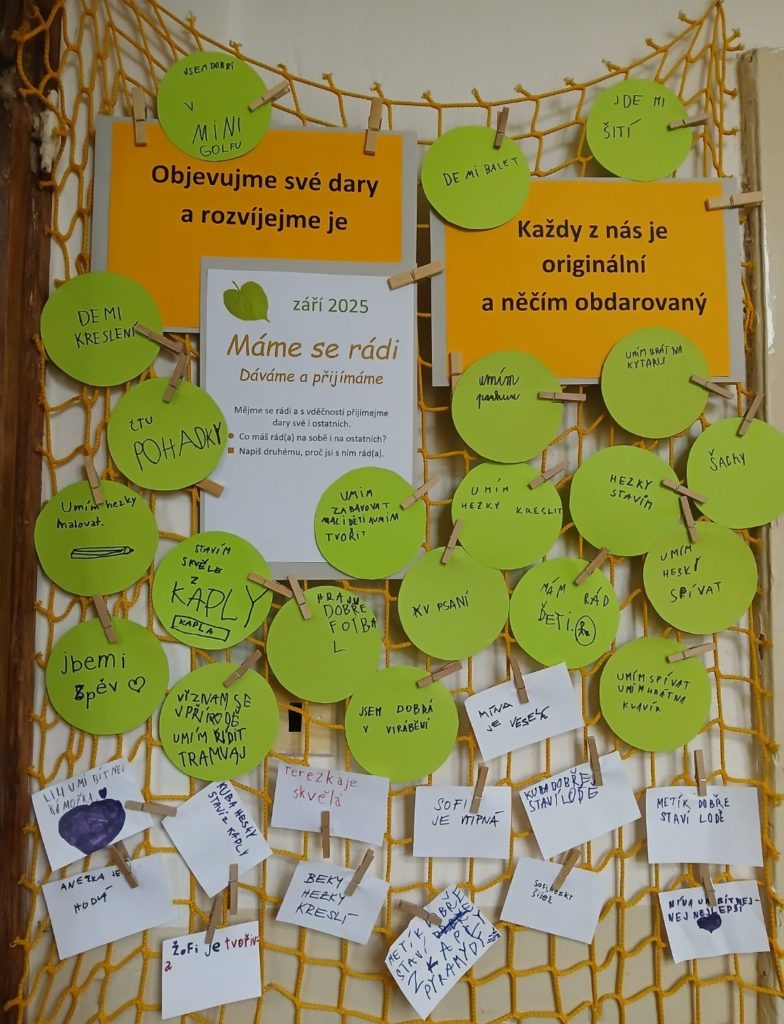 JSEM DOBŘÍ
V
MINI
GOLFU
JDE MI
ŠITÍ
DE MI BALET
Objevujme své dary
a rozvíjejme je
Každy z nás je
originální
a něčím obdarovaný
září 2025
Máme se rádi
Dáváme a přijímáme
Mějme se rádi a s vděčností přijímejme
dary své i ostatních.
Co máš rád(a) na sobě i na ostatních?
Napiš druhému, proč jsi s ním rád(a).
DE MI
KRESLENÍ
ČTU
POHADKY
umím
parkur
UMÍM HRÁT NA
KYTARU
ŠACHY
Umím hezky
malovat.
UMÍM
ZABAVOVAT
MALÍ DĚTI A UMÍM
TVOŘIT
UMÍM
HEZKY KRESLIT
HEZKY
STAVÍM
STAVÍM
SKVĚLE
Z
KAPLY
KAPLA
HRAJU
DOBŘE
FOTBA
L
KV PSANÍ
MÁM RÁD
ĎETI.
UMÍM
HESKI
SPÍVAT
jbemi
zpěv
VÝZNAM SE
V PŘÍRODĚ
UMÍM ŘÍDIT
TRAMVAJ
JSEM DOBRÁ
V VIRÁBĚNÍ
UMÍM SPÍVAT
UMÍM HRÁT NA
KLAVÍR
MÍNA
JE VESELÁ
LILI UMÍ BÍT NEJ
KÁMOŠKA
KUBA HESKY
STAVÍ Z KAPLY
Terezka je
skvělá
SOFI
JE VTIPNÁ
KUBA DOBŘE
STAVÍ LODĚ
METÍK DOBŘE
STAVÍ LODĚ
ANEŽKA JE
HODNÁ
BEKY
HEZKY
KRESLÍ
METÍK JE
STAVÍ DOBŘE
Z KAPLY
PYRAMYDY
SOFI HEZKY
MÍNA UMÍ BÍT NEJ-
NEJ NEJLEPŠÍ
ŽOFI je tvořiv-
á